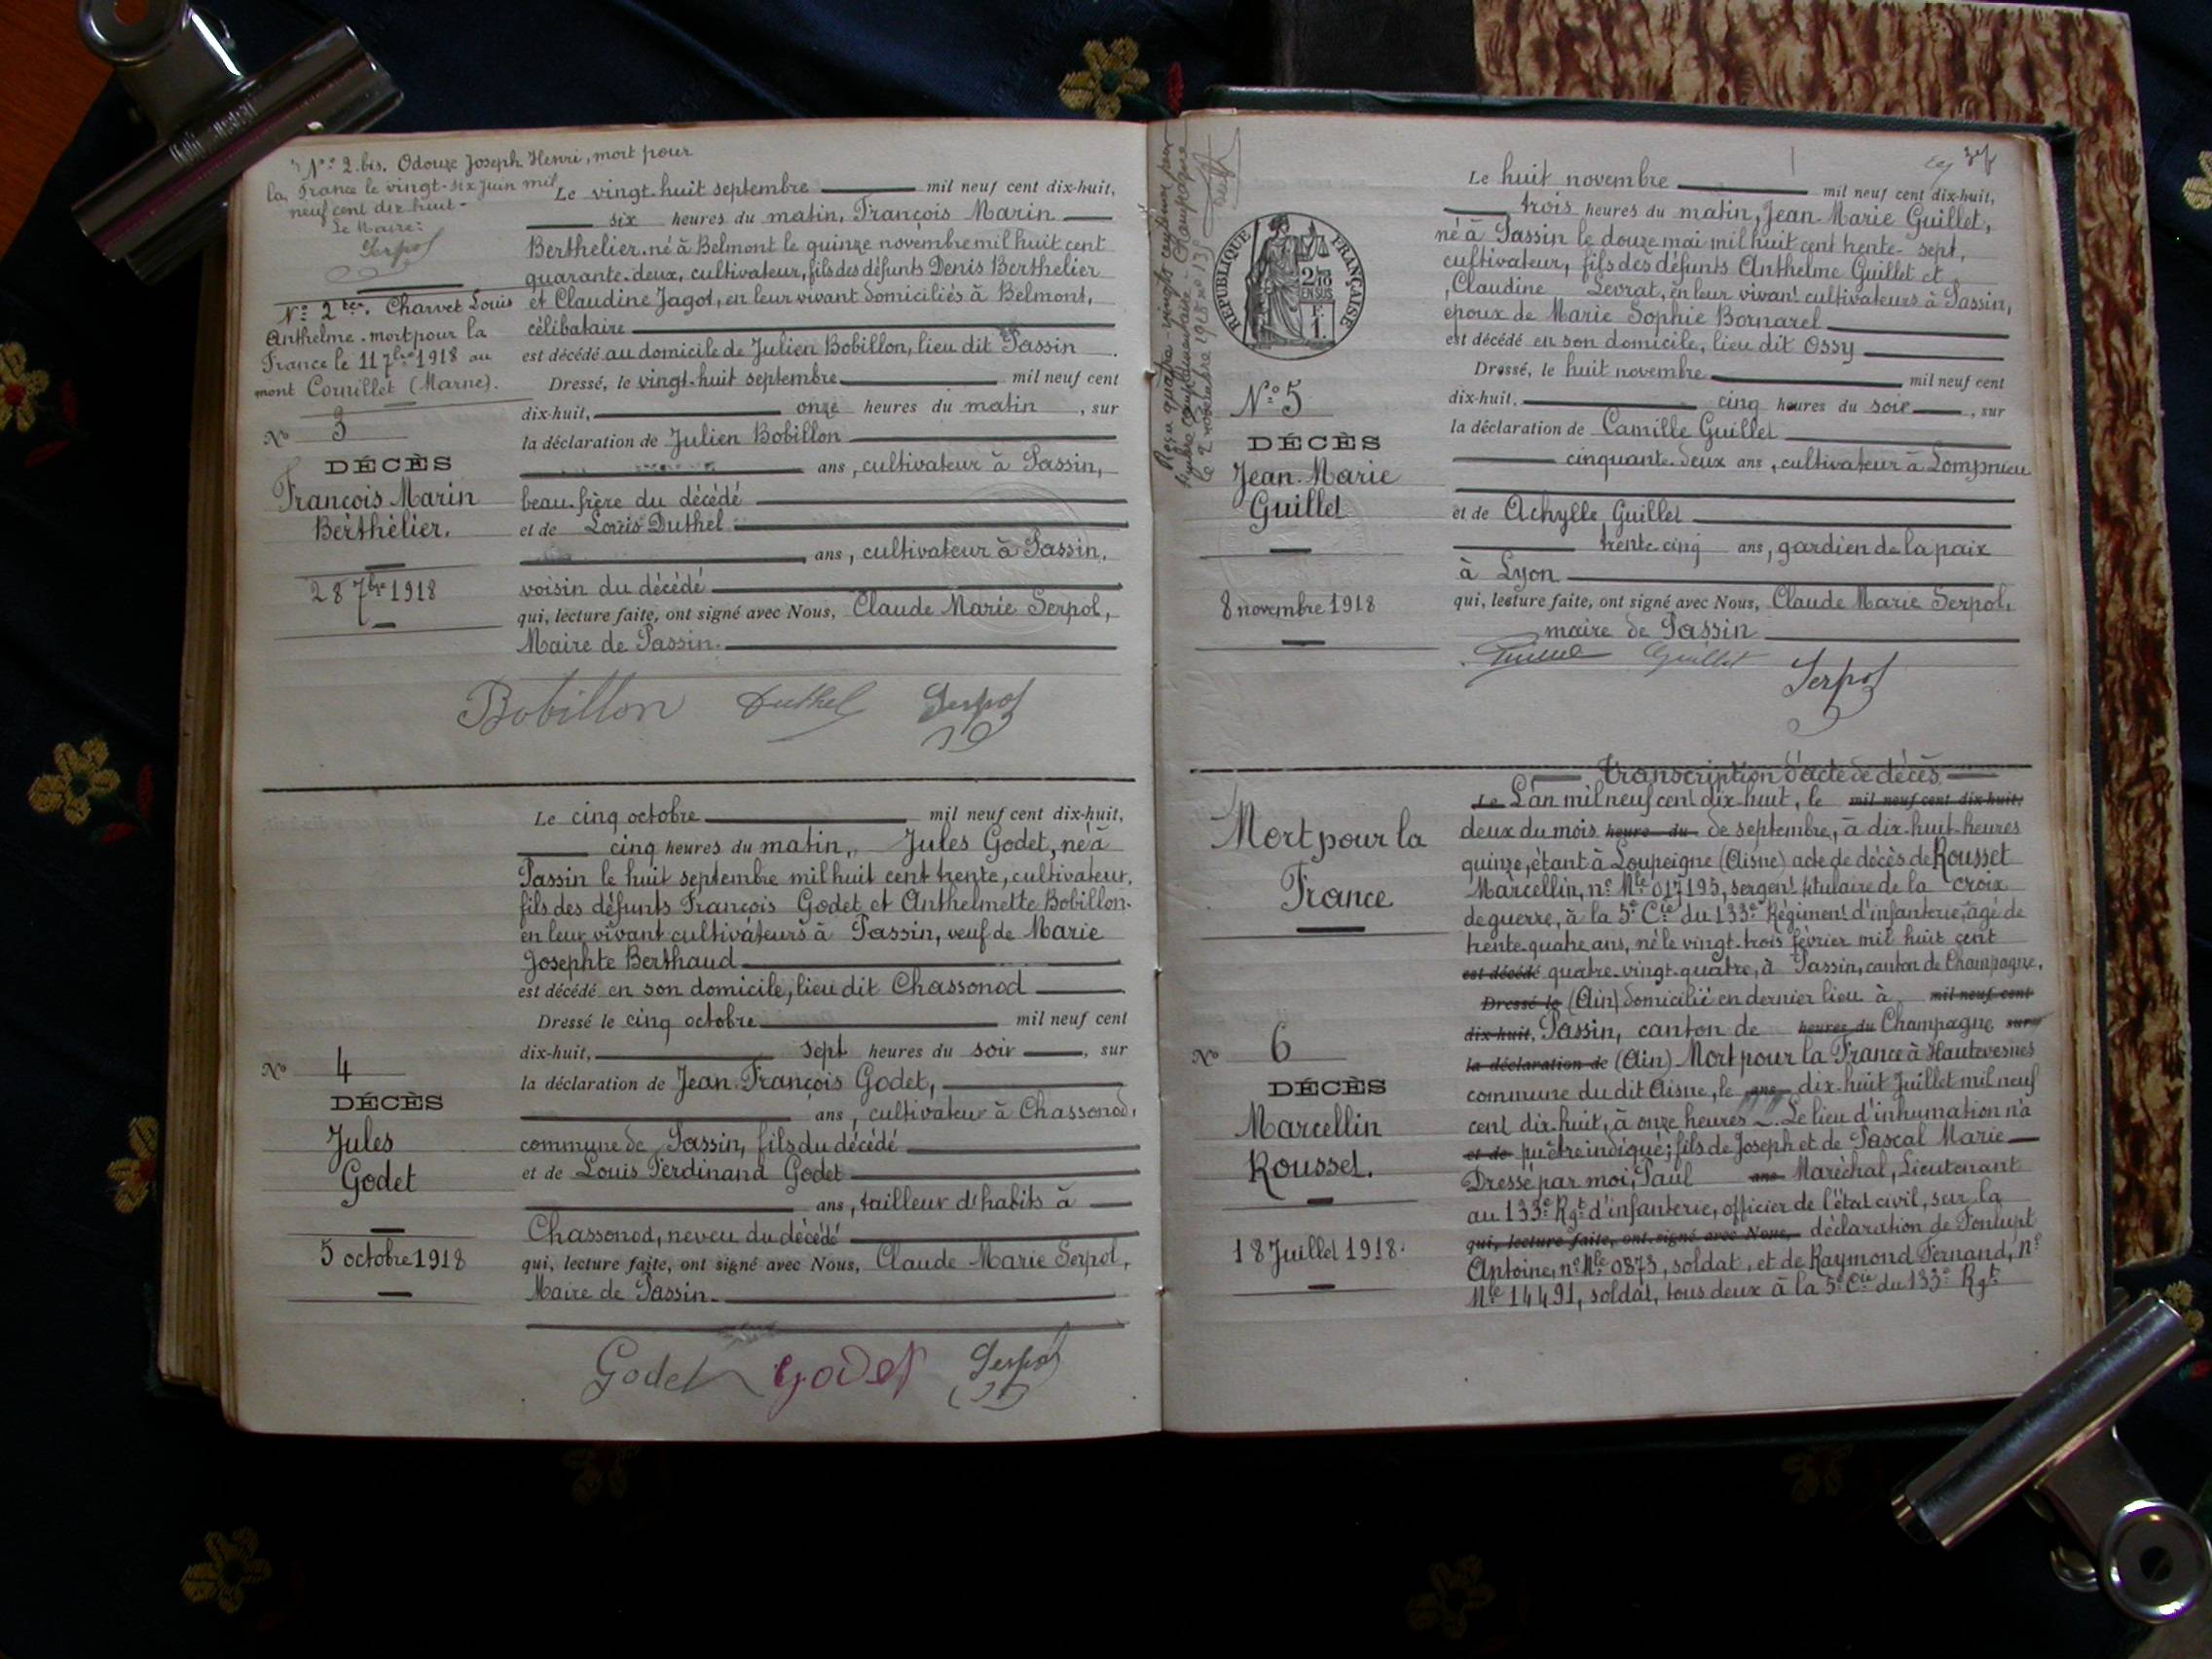 N° 2 bis. Odouze Joseph Henri, mort pour
la France le vingt-six Juin mil
neuf cent dix huit -
Le Maire:
Serpol
N° 2 ter. Charvet Louis
Anthelme - mort pour la
France le 11 7bre 1918 au
mont Cornillet (Marne).
N° 3
DÉCÈS
François Marin
Berthelier.
28 7bre 1918
Le vingt-huit septembre mil neuf cent dix-huit,
six heures du matin, François Marin
Berthelier né à Belmont le quinze novembre mil huit cent
quarante-deux, cultivateur, fils des défunts Denis Berthelier
et Claudine Jagot, en leur vivant domiciliés à Belmont,
célibataire
est décédé au domicile de Julien Bobillon, lieu dit Passin.
Dressé, le vingt-huit septembre mil neuf cent
dix-huit, onze heures du matin, sur
la déclaration de Julien Bobillon
ans, cultivateur à Passin,
beau-frère du décédé
et de Louis Duthel
ans, cultivateur à Passin,
voisin du décédé
qui, lecture faite, ont signé avec Nous, Claude Marie Serpol,
Maire de Passin.
Bobillon Duthel Serpol
N° 4
DÉCÈS
Jules
Godet
5 octobre 1918
Le cinq octobre mil neuf cent dix-huit,
cinq heures du matin, Jules Godet, né à
Passin le huit septembre mil huit cent trente, cultivateur,
fils des défunts François Godet et Anthelmette Bobillon
en leur vivant cultivateurs à Passin, veuf de Marie
Josephte Berthaud
est décédé en son domicile, lieu dit Chassonod
Dressé le cinq octobre mil neuf cent
dix-huit, sept heures du soir, sur
la déclaration de Jean-François Godet,
ans, cultivateur à Chassonod,
commune de Passin, fils du décédé
et de Louis Ferdinand Godet
ans, tailleur d'habits à
Chassonod, neveu du décédé
qui, lecture faite, ont signé avec Nous, Claude Marie Serpol,
Maire de Passin.
Godet Godet Serpol
RÉPUBLIQUE FRANÇAISE
2/10
EN SUS
F.
1.
N° 5
DÉCÈS
Jean-Marie
Guillet
8 novembre 1918
Le huit novembre mil neuf cent dix-huit,
trois heures du matin, Jean-Marie Guillet,
né à Passin le douze mai mil huit cent trente-sept,
cultivateur, fils des défunts Anthelme Guillet et
Claudine Levrat, en leur vivant cultivateurs à Passin,
époux de Marie Sophie Bornarel
est décédé en son domicile, lieu dit Ossy
Dressé, le huit novembre mil neuf cent
dix-huit, cinq heures du soir, sur
la déclaration de Camille Guillet
cinquante-deux ans, cultivateur à Lompnieu
et de Achylle Guillet
trente cinq ans, gardien de la paix
à Lyon
qui, lecture faite, ont signé avec Nous, Claude Marie Serpol,
maire de Passin
Guillet Serpol
Mort pour la
France
N° 6
DÉCÈS
Marcellin
Rousset.
18 Juillet 1918.
Transcription d'acte de décès.
Le L'an mil neuf cent dix-huit, le mil neuf cent dix-huit,
deux du mois heure du de septembre, à dix-huit heures
quinze, étant à Loupeigne (Aisne) acte de décès de Rousset
Marcellin, n° Mle 017195, sergent titulaire de la croix
de guerre, à la 5e Cie du 133e Régiment d'infanterie, âgé de
trente-quatre ans, né le vingt-trois février mil huit cent
est décédé quatre-vingt-quatre, à Passin, canton de Champagne,
Dressé le (Ain) domicilié en dernier lieu à mil neuf cent
dix-huit, Passin, canton de heures du Champagne sur
la déclaration de (Ain) Mort pour la France à Hautevesnes
commune du dit Aisne, le ans dix-huit Juillet mil neuf
cent dix-huit, à onze heures. Le lieu d'inhumation n'a
et de pu être indiqué; fils de Joseph et de Pascal Marie
Dressé par moi, Paul ans Maréchal, Lieutenant
au 133e Rgt d'infanterie, officier de l'état civil, sur la
qui, lecture faite, ont signé avec Nous, déclaration de Fonlupt
Antoine, n° Mle 0873, soldat, et de Raymond Fernand, n°
Mle 14491, soldat, tous deux à la 5e Cie du 133e Rgt